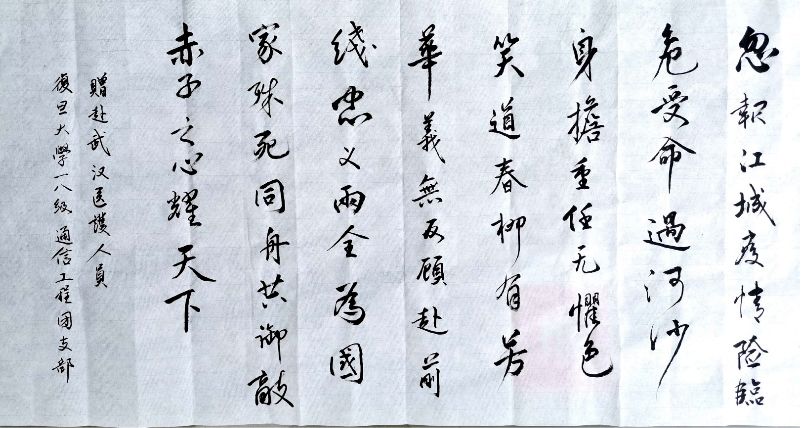 忽報江城疫情险臨
危受命過河沙
身擔重任无懼色
笑道春柳有芳
華義無反顧赴前
线忠义兩全為國
家殊死同舟共御敵
赤子之心耀天下
贈赴武汉医護人員
復旦大學一八級通信工程团支部